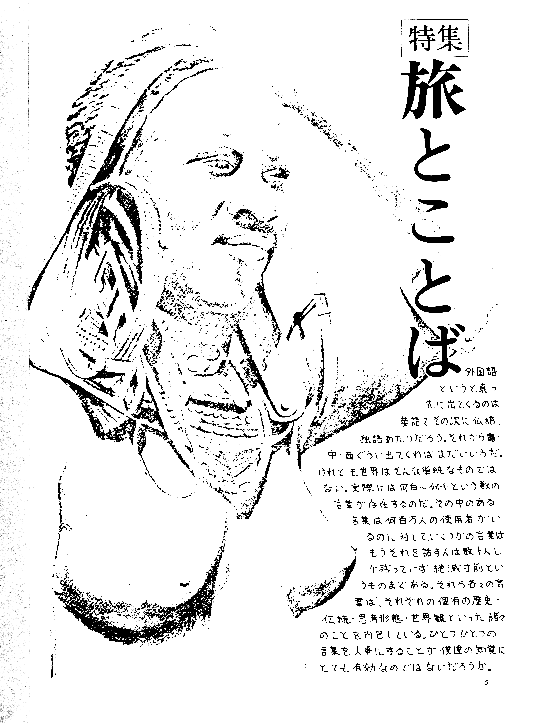 特集
旅とことば
外国語
というと真っ
先に出てくるのは
英語でその次に仏語、
独語あたりだろう。それから露・
中・西ぐらい出てくればまだいいうだ。
けれども世界はそんな単純なものでは
ない。実際には何百～何千という数の
言葉が存在するのだ。その中のある
言葉は何百万人の使用者がい
るのに対して、いくつかの言葉は
もうそれを話す人は数十人し
か残っていず絶滅寸前とい
うものまである。それら各々の言
葉は、それぞれの個有の歴史・
伝統・思考形態・世界観といった諸々
のことを内包している。ひとつひとつの
言葉を大事にすることが僕達の知覚に
とても有効なのではないだろうか。
5